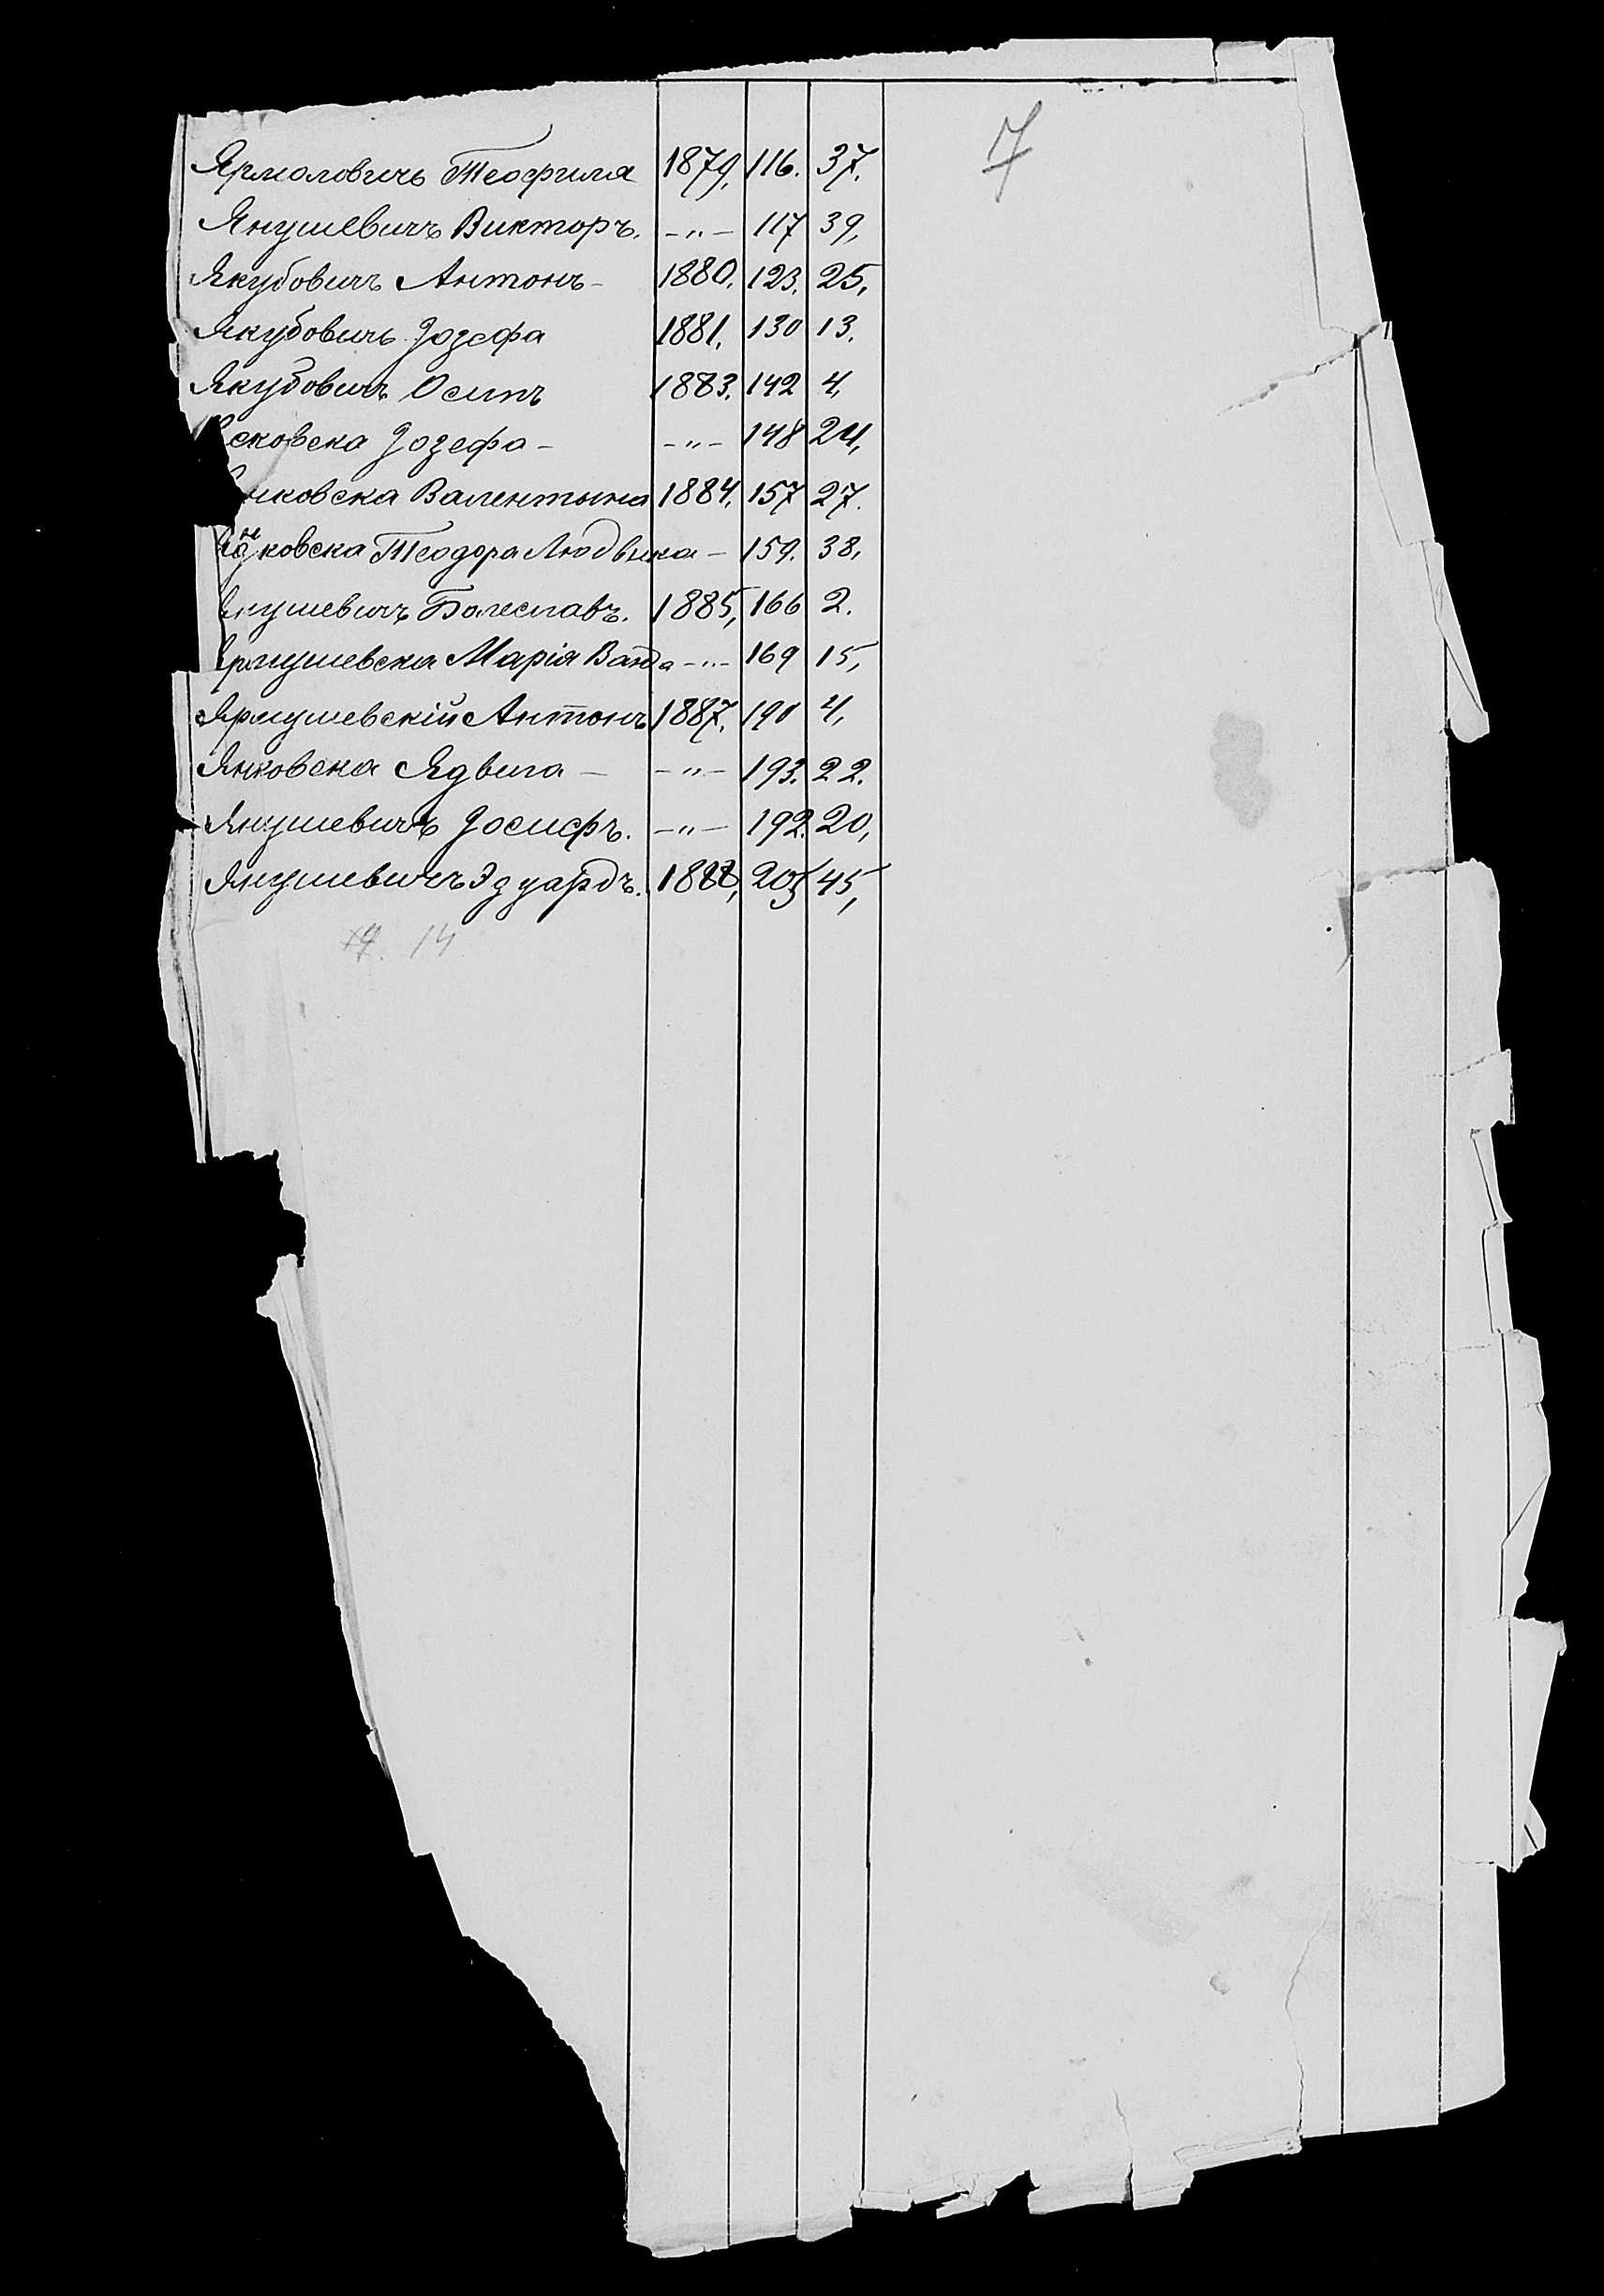 7
Ярмоловичъ Теофиля 1879, 116. 37.
Янушевичъ Викторъ. -"- 117 39,
Якубовичъ Антонъ - 1880. 123. 25,
Якубовичъ Іозефа 1881. 130 13.
Якубовичъ Осипъ 1883. 142 4,
сковска Іозефа - -"- 148 24,
нковска Валентына 1884. 157 27.
ковска Теодора Людвика - 159. 38,
нушевичъ Болеславъ. 1885, 166 2.
рмушевска Марія Ванда -"- 169 15,
Ярмушевскій Антонъ 1887. 190 4,
Янковска Ядвига - -"- 193. 22.
Янушевичъ Іосифъ. -"- 192. 20,
Янушевичъ Эдуардъ. 1888, 205 45,
14